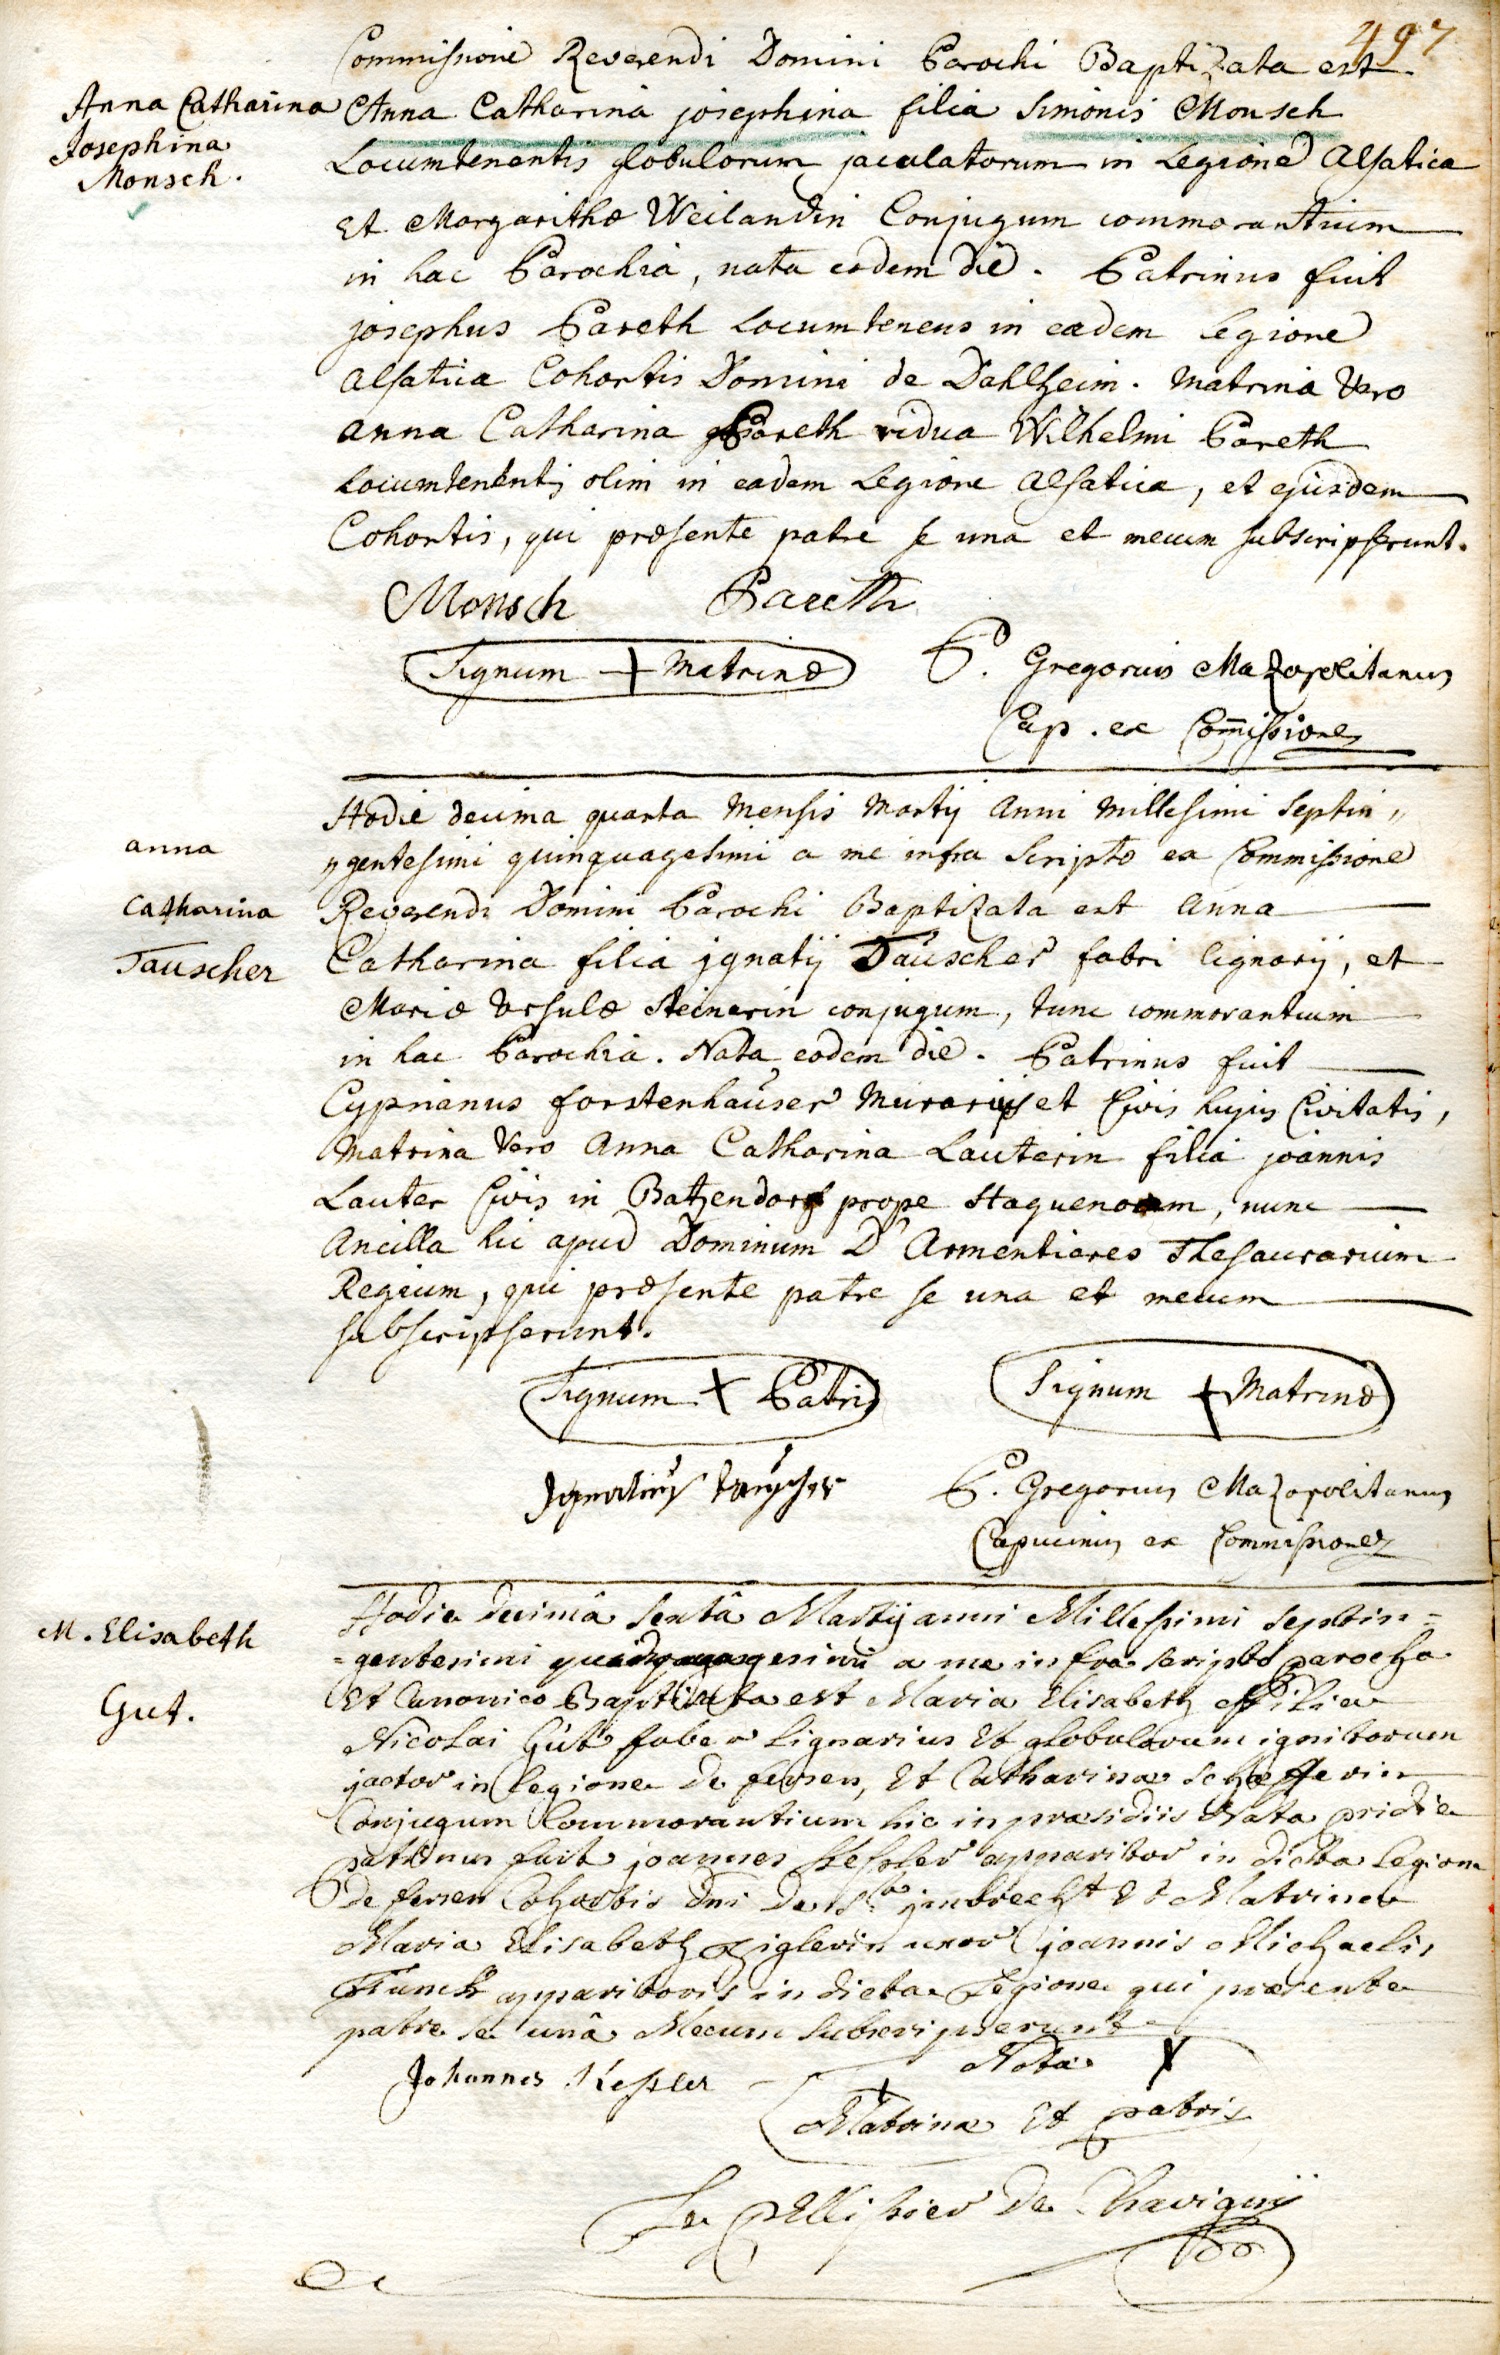 497
Commissione Reverendi Domini Parochi Baptizata est
Anna Catharina Josephina Monsch.
Anna Catharina josephina filia Simonis Monsch
Locumtenentis globulorum jaculatorum in Legione Alsatica
et Margarithæ Weilandin Conjugum commorantium
in hac Parochia, nata eodem die. Patrinus fuit
josephus Pareth Locumtenens in eadem legione
Alsatica Cohortis Domini de Dahlheim. Matrina Vero
anna Catharina Pareth vidua Wilhelmi Pareth
Locumtenentis olim in eadem Legione Alsatica, et ejusdem
Cohortis, qui præsente patre se una et mecum subscripserunt.
Monsch Pareth
Signum + Matrinæ P. Gregorius Mazopolitanus
Cap. ex Com̄issione
Hodie decima quarta Mensis Martij Anni Millesimi Septin„
„gentesimi quinquagesimi a me infra Scripto ex Commissione
anna Catharina Tauscher
Reverendi Domini Parochi Baptizata est Anna
Catharina filia jgnatij Tauscher fabri lignarij, et
Mariæ Vrsulæ Steinerin conjugum, tunc commorantium
in hac Parochia. Nata eodem die. Patrinus fuit
Cyprianus forstenhauser Murarius et Civis hujus Civitatis,
Matrina Vero Anna Catharina Lauterin filia joannis
Lauter Civis in Batzendorf prope Haguenoam, nunc
Ancilla hic apud Dominum D'Armentieres Thesaurarium
Regium, qui præsente patre se una et mecum
subscripserunt.
Signum + Patri Signum + Matrinæ
Jgnatius tauscher P. Gregorius Mazopolitanus
Capucinus ex Commissione
M. Elisabeth Gut.
Hodie decimâ sextâ Martij anni Millessimi septin=
=gentesimi a me infra scripto parocho
Et Canonico Baptizata est Maria Elisabeth filia
Nicolai Gut faber Lignarius Et globulorum ignitorum
jactor in legione de fersen, Et Catharinæ schæfferin
Conjugum Commorantium hic in præsidiis Nata pridie
patrinus fuit joannes Kessler apparitor in dicta legione
de fersen Cohortis Dni De jmbrecht Et Matrina
Maria Elisabeth Ziglerin uxor joannis Michaelis
Funck apparitoris in dicta Legione qui præsente
patre se unâ Mecum subscripserunt
Johannes Kessler Nota X
+ Matrinæ Et patris
Le Pellissier De Chavignij